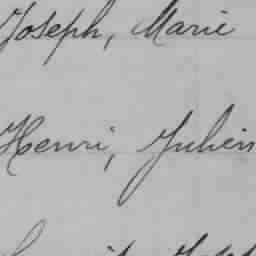 Joseph, Marie
Henri, Julien